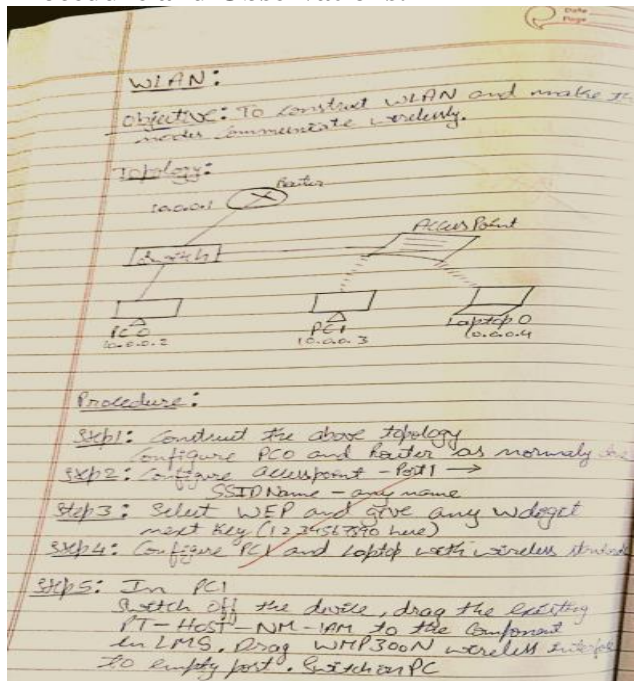 Procedure and Observations:
Date
Page
WLAN:
Objective: To construct WLAN and make the
nodes communicate wirelessly.
Topology:
Router
10.0.0.1
Access Point
Switch
PC0
10.0.0.2
PC1
10.0.0.3
Laptop0
10.0.0.4
Procedure:
Step1: Construct the above topology
Configure PC0 and Router as normaly
Step2: Configure accesspoint - Port1 →
SSID Name - any name
Step3: Select WEP and give any
Key (1234567890 here)
Step4: Configure PC1 and Laptop with wireless
Step5: In PC1
Switch off the device, drag the existing
PT-HOST-NM-1AM to the Component
in LMS. Drag WMP300N wireless
to empty port. Switch on PC